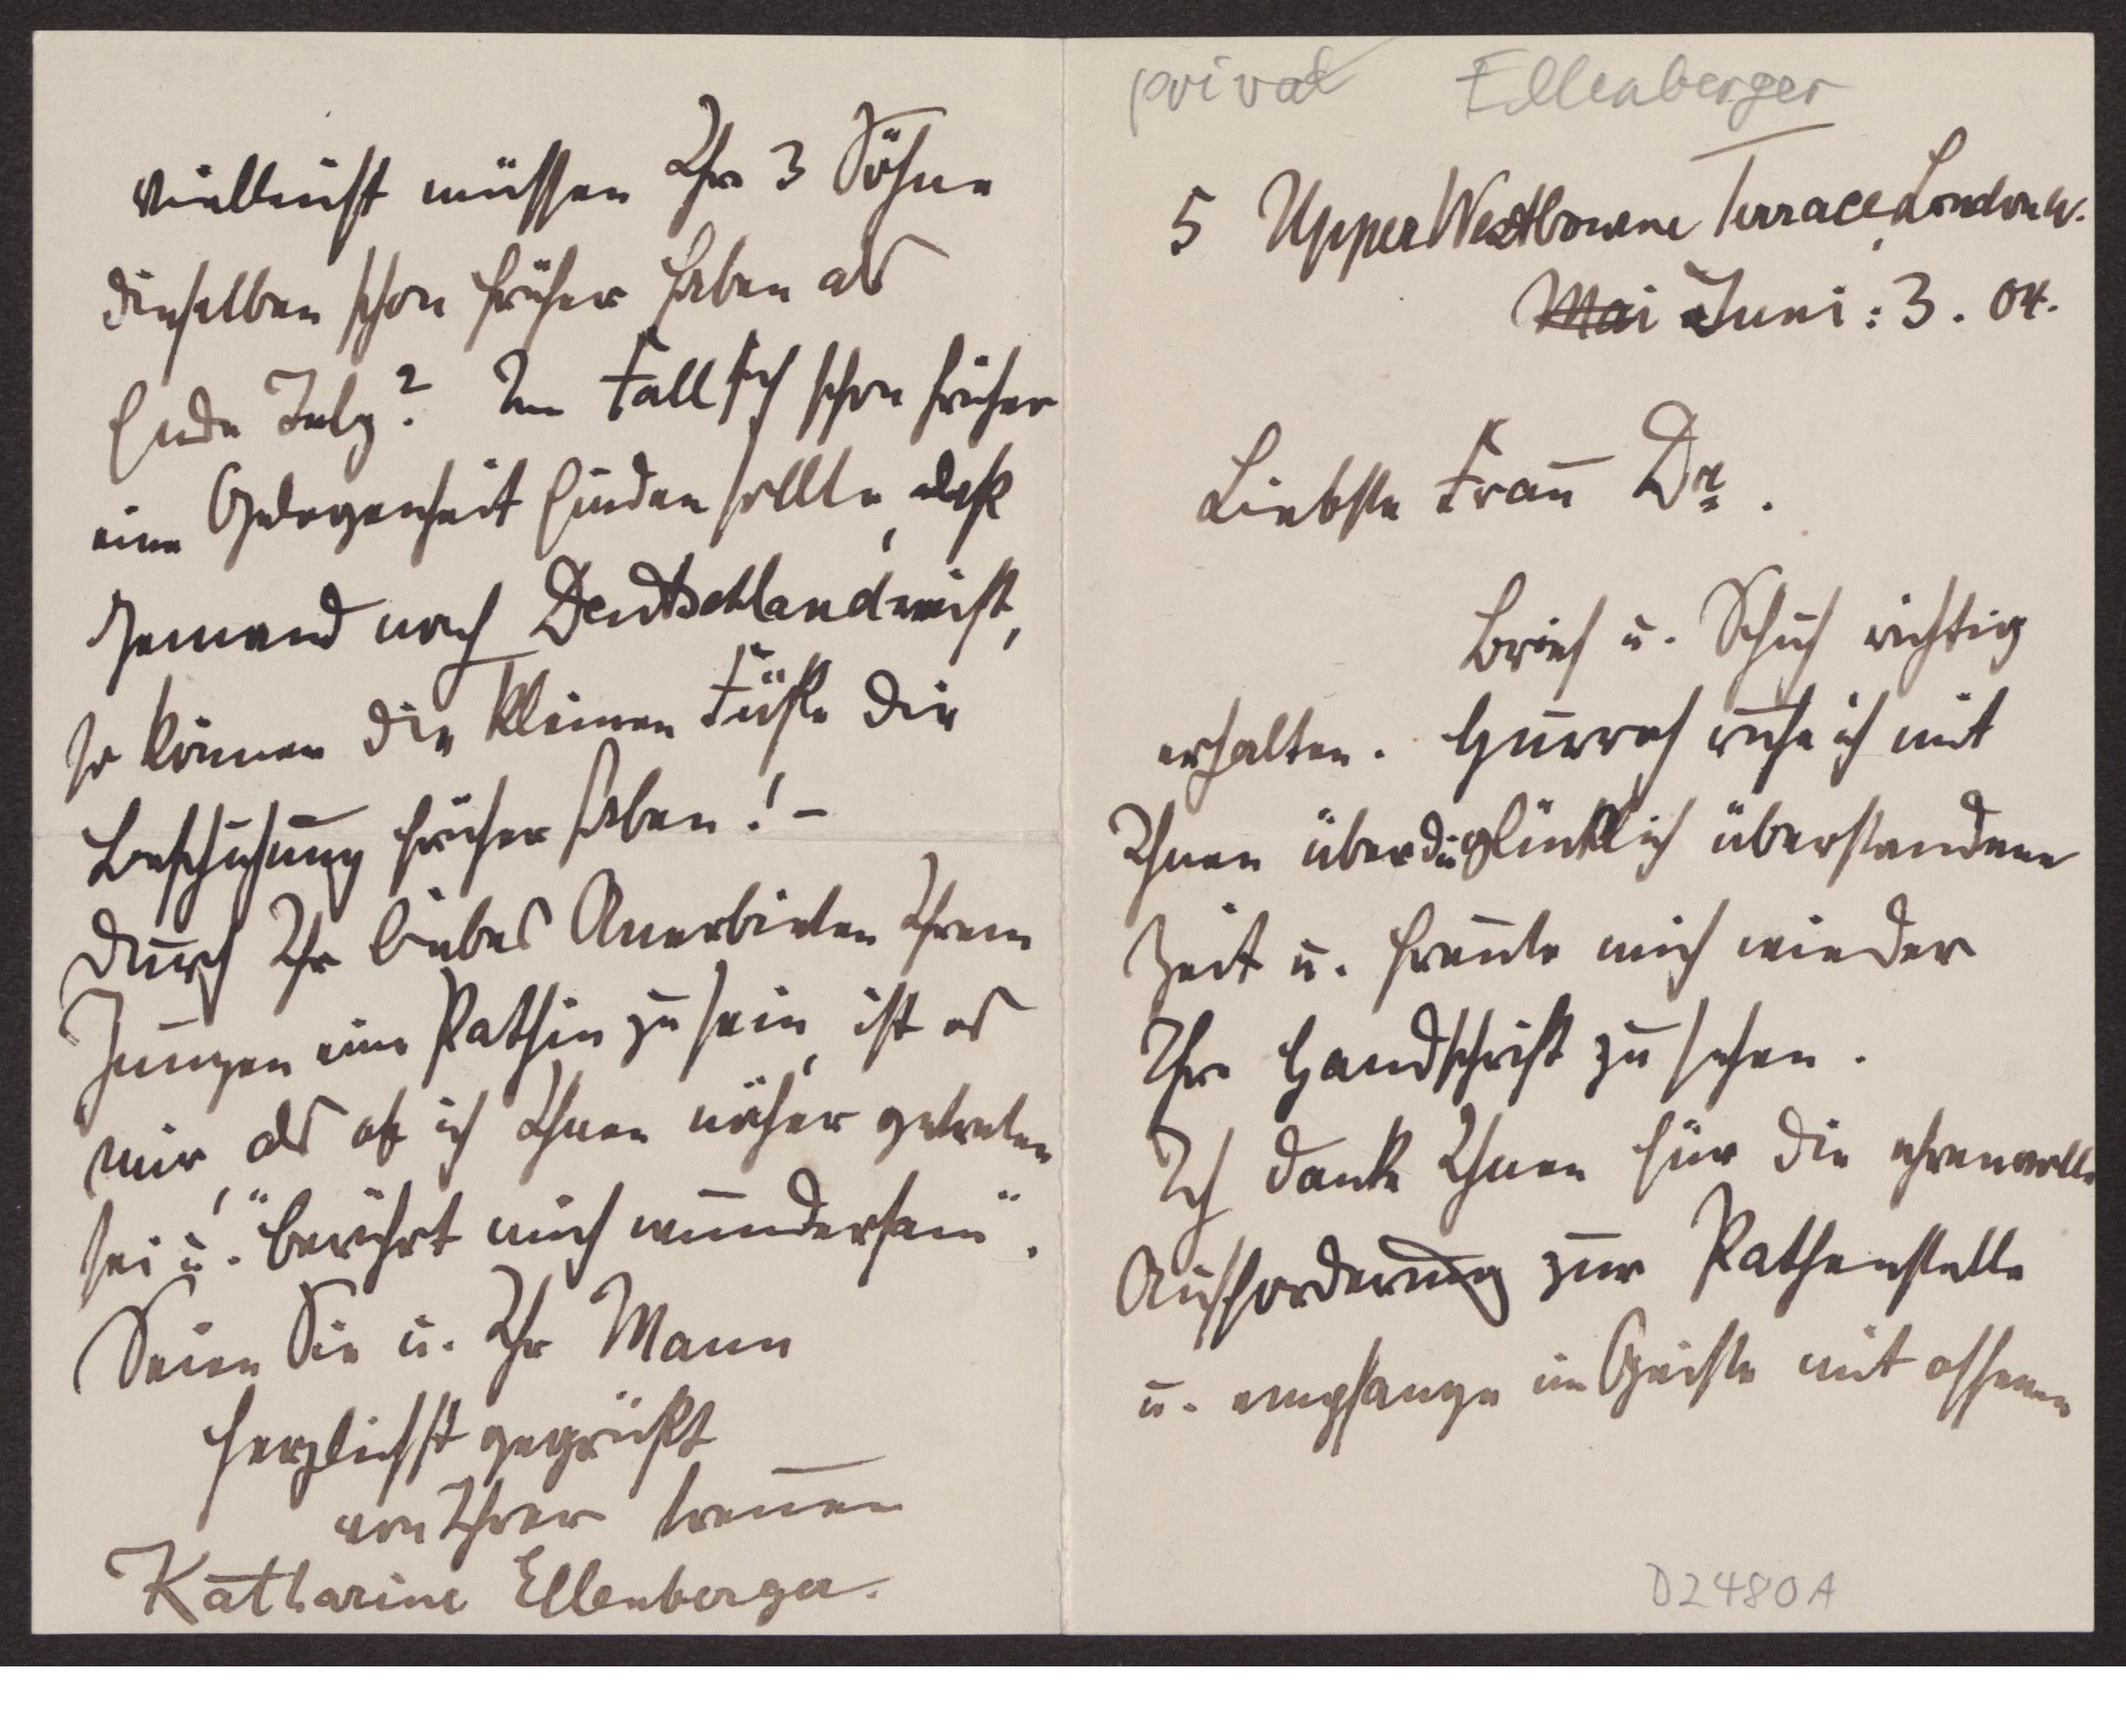 privat Ellenberger
5 Upper Westbourne Terrace, London W.
Mai Juni: 3. 04.
Liebste Frau Dr.
Brief u. Schuh richtig
erhalten. Hurrah rufe ich mit
Ihnen über die glücklich überstandene
Zeit u. freute mich wieder
Ihre Handschrift zu sehen.
Ich danke Ihnen für die ehrenvolle
Aufforderung zur Pathenstelle
u. empfange im Geiste mit offenen
D2480A
vielleicht müssen Ihre 3 Söhne
dieselben schon früher haben als
Ende July? Im Fall sich schon früher
eine Gelegenheit finden sollte, daß
Jemand nach Deutschland reist,
so können die kleinen Füße die
Beschuhung früher haben! –
Durch Ihr liebes Anerbieten Ihrem
Jungen eine Pathin zu sein, ist es
mir, als ob ich Ihnen näher getreten
sei u. "berührt mich wundersam".
Seien Sie u. Ihr Mann
herzlichst gegrüßt
von Ihrer treuen
Katharine Ellenberger.